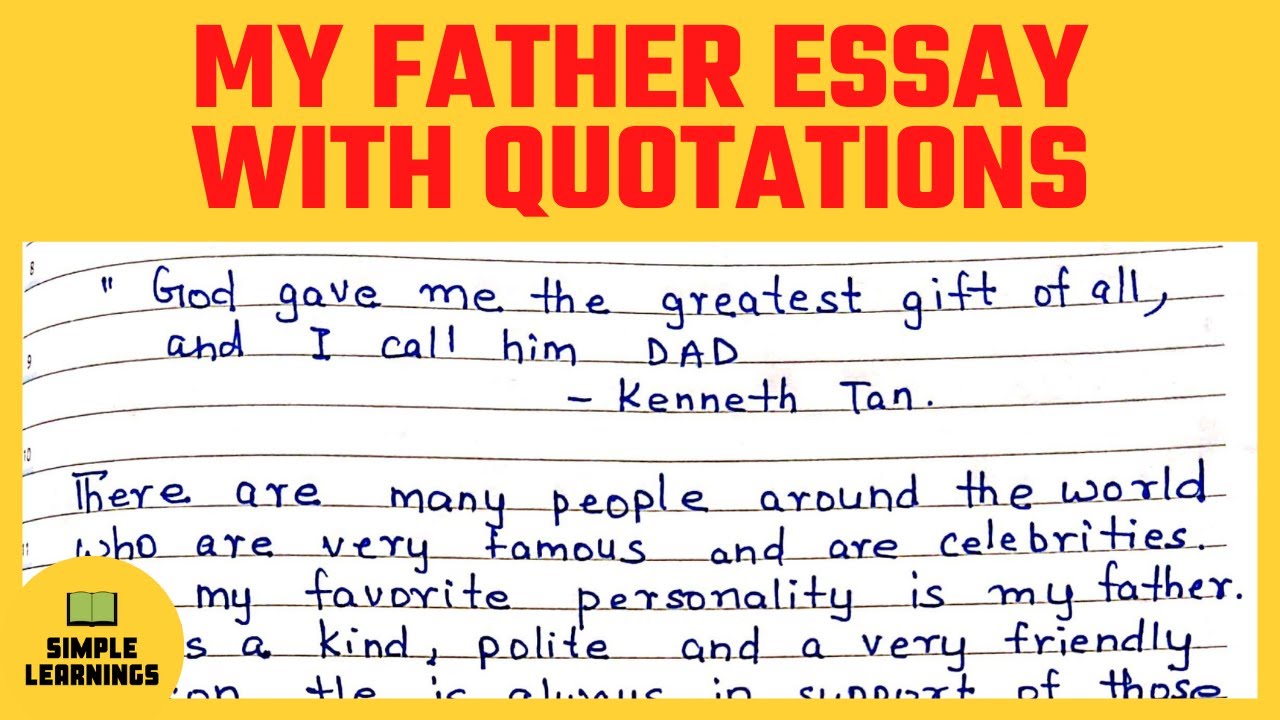 MY FATHER ESSAY
WITH QUOTATIONS
8
" God gave me the greatest gift of all,
and I call him DAD
9
- Kenneth Tan.
10
There are many people around the world
11
who are very famous and are celebrities.
my favorite personality is my father.
s a kind, polite and a very friendly
on He is always in support of those
SIMPLE
LEARNINGS